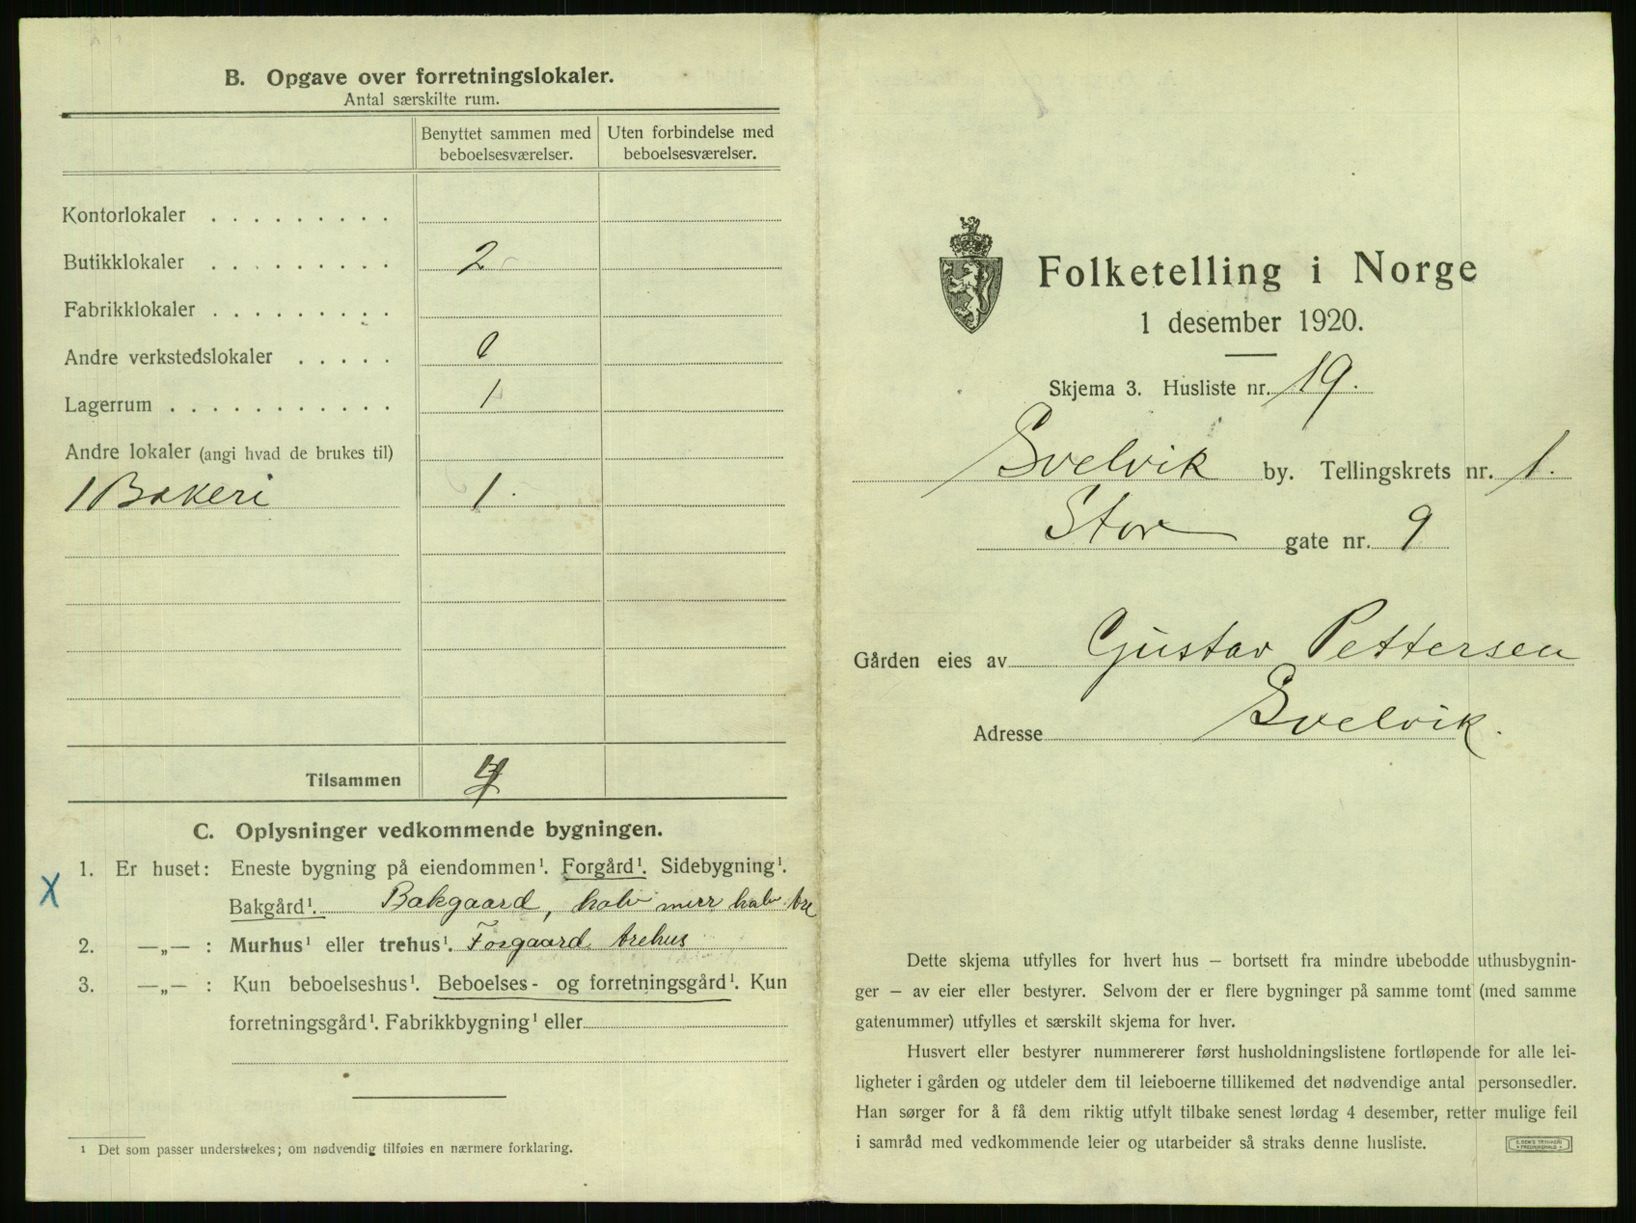 B. Opgave over forretningslokaler.
Antal særskilte rum.
Benyttet sammen med beboelsesværelser.
Uten forbindelse med beboelsesværelser.
Kontorlokaler . . . . . . . . .
Butikklokaler . . . . . . . . . 2
Fabrikklokaler . . . . . . . . .
Andre verkstedslokaler . . . . . 0
Lagerrum . . . . . . . . . . . 1
Andre lokaler (angi hvad de brukes til)
1 Bakeri 1.
Tilsammen 4
C. Oplysninger vedkommende bygningen.
1. Er huset: Eneste bygning på eiendommen¹. Forgård¹. Sidebygning¹.
X Bakgård¹. Bakgaard, halv murr halv tre
2. —„— : Murhus¹ eller trehus¹. Forgaard trehus
3. —„— : Kun beboelseshus¹. Beboelses- og forretningsgård¹. Kun
forretningsgård¹. Fabrikkbygning¹ eller
¹ Det som passer understrekes; om nødvendig tilføies en nærmere forklaring.
Folketelling i Norge
1 desember 1920.
Skjema 3. Husliste nr. 19.
Svelvik by. Tellingskrets nr. 1.
Stor gate nr. 9
Gården eies av Gustav Pettersen
Adresse Svelvik.
Dette skjema utfylles for hvert hus – bortsett fra mindre ubebodde uthusbygnin-
ger – av eier eller bestyrer. Selvom der er flere bygninger på samme tomt (med samme
gatenummer) utfylles et særskilt skjema for hver.
Husvert eller bestyrer nummererer først husholdningslistene fortløpende for alle lei-
ligheter i gården og utdeler dem til leieboerne tillikemed det nødvendige antal personsedler.
Han sørger for å få dem riktig utfylt tilbake senest lørdag 4 desember, retter mulige feil
i samråd med vedkommende leier og utarbeider så straks denne husliste.